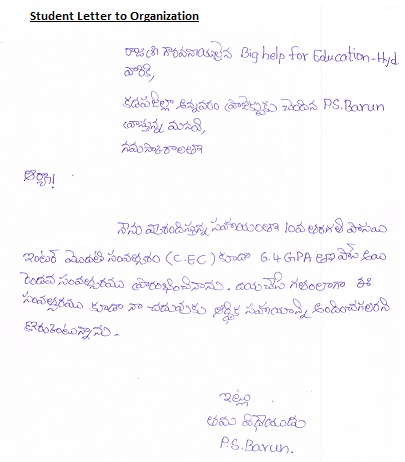 Student Letter to Organization
రాజశ్రీ గౌరవనీయులైన Big help for Education-Hyd
వారికి,
కడపజిల్లా అన్నవరం ప్రాజెక్టుకు చెందిన P.S.Barun
వ్రాస్తున్న మనవి,
నమస్కారాలతో
ఆర్యా!!
నాకు మీరందిస్తున్న సహాయంతో 10వ తరగతి పాసయి
ఇంటర్ మొదటి సంవత్సరం (C.EC) కూడా 6.4 GPA తో పాస్ అయి
రెండవ సంవత్సరము ప్రారంభించినాను. దయచేసి గతంలాగా ఈ
సంవత్సరము కూడా నా చదువుకు ఆర్థిక సహాయాన్ని అందించగలరని
కోరుకుంటున్నాను.
ఇట్లు
తమ విధేయుడు
P.S.Barun.